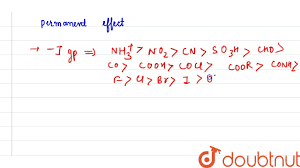 permanent effect
→ -I gp ⇒ NH₃⁺ > NO₂ > CN > SO₃H > CHO >
CO > COOH > COCl > COOR > CONH₂ >
F > Cl > Br > I >
doubtnut